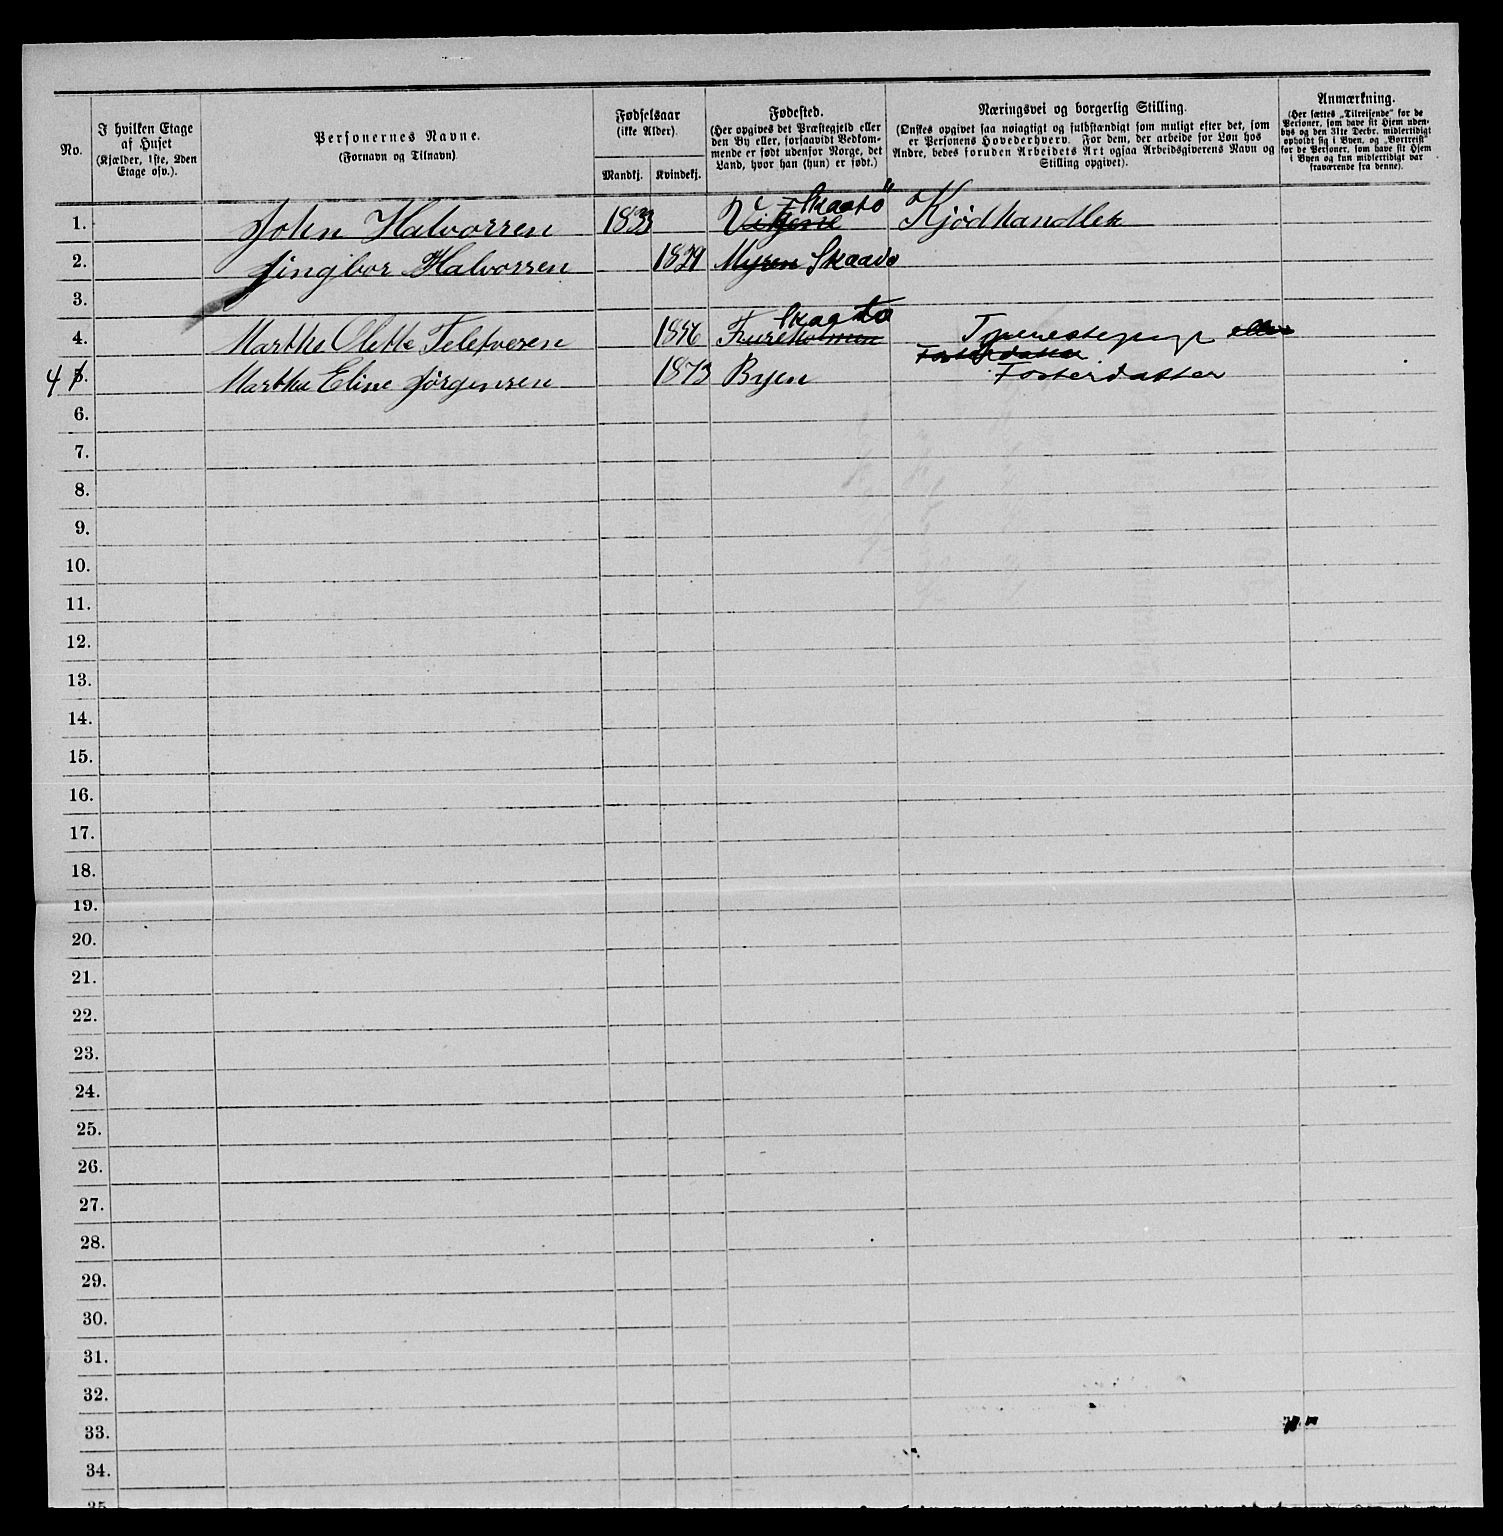 No.
I hvilken Etage
af Huset
(Kjælder, 1ste, 2den
Etage osv.).
Personernes Navne.
(Fornavn og Tilnavn)
Fødselsaar
(ikke Alder).
Mandkj. Kvindekj.
Fødested.
(Her opgives det Præstegjeld eller
den By eller, forsaavidt Vedkom-
mende er født udenfor Norge, det
Land, hvor han (hun) er født.)
Næringsvei og borgerlig Stilling.
(Ønskes opgivet saa nøiagtigt og fuldstændigt som muligt efter det, som
er Personens Hovederhverv. For dem, der arbeide for Løn hos
Andre, bedes foruden Arbeidets Art ogsaa Arbeidsgiverens Navn og
Stilling opgivet).
Anmærkning.
(Her sættes „Tilreisende“ for de
Personer, som have sit Hjem uden-
bys og den 31te Decbr. midlertidigt
opholdt sig i Byen, og „Bortreist“
for de Personer, som have sit Hjem
i Byen og kun midlertidigt var
fraværende fra denne).
Skaatö
1. John Halvorsen 1833 Kjödhandler
2. Jingbor Halvorsen 18 Myren Skaadö
3.
Skaatö
4. Marthe Olette 1856 Tjenestepige eller
Fosterdatter
4 5. Marthe Eline Jørgensen 1873 Byen Fosterdatter
6.
7.
8.
9.
10.
11.
12.
13.
14.
15.
16.
17.
18.
19.
20.
21.
22.
23.
24.
25.
26.
27.
28.
29.
30.
31.
32.
33.
34.
35